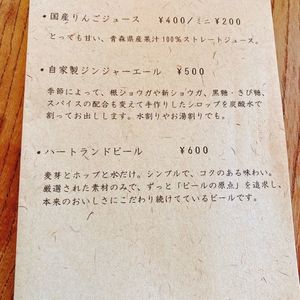 ・国産りんごジュース ¥400/ミニ ¥200
とっても甘い、青森県産果汁100%ストレートジュース。
・自家製ジンジャーエール ¥500
季節によって、根ショウガや新ショウガ、黒糖・きび糖、
スパイスの配合も変えて手作りしたシロップを炭酸水で
割ってお出しします。水割りやお湯割りでも。
・ハートランドビール ¥600
麦芽とホップと水だけ。シンプルで、コクのある味わい。
厳選された素材のみで、ずっと「ビールの原点」を追求し、
本来のおいしさにこだわり続けているビールです。